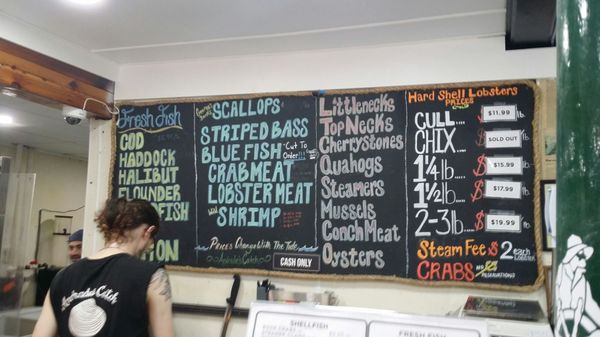 Fresh Fish
COD
HADDOCK
HALIBUT
FLOUNDER
FISH
MON
SCALLOPS
STRIPED BASS
BLUE FISH
CRABMEAT
LOBSTER MEAT
SHRIMP
"Cut To
Order!!
CASH ONLY
Littlenecks
Top Necks
Cherrystones
Quahogs
Steamers
Mussels
Conch Meat
Oysters
Hard Shell Lobsters
PRICES
CULL $11.99
CHIX SOLD OUT
1¼ lb. $15.99
1½ lb. $17.99
2-3 lb. $19.99
Steam Fee $2 each Lobster
CRABS
RESERVATIONS
Catch
SHELLFISH
FRESH FISH